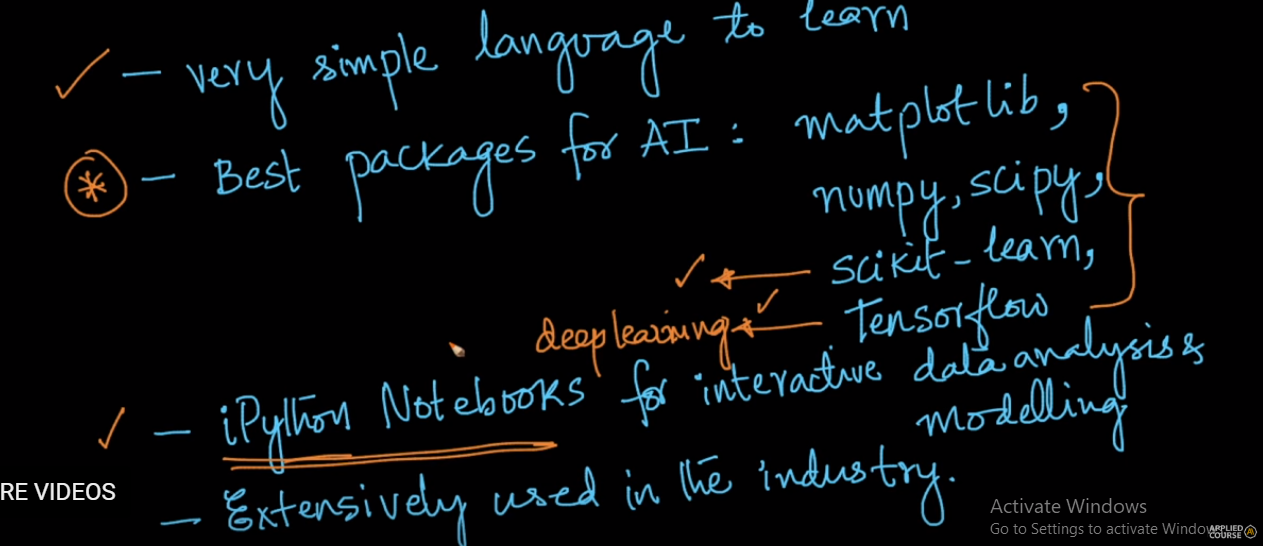 - very simple language to learn
- Best packages for AI : matplotlib,
numpy, scipy,
scikit-learn,
deep learning Tensorflow
- iPython Notebooks for interactive data analysis &
modelling
- Extensively used in the industry.
RE VIDEOS
Activate Windows
Go to Settings to activate Windows
APPLIED
COURSE